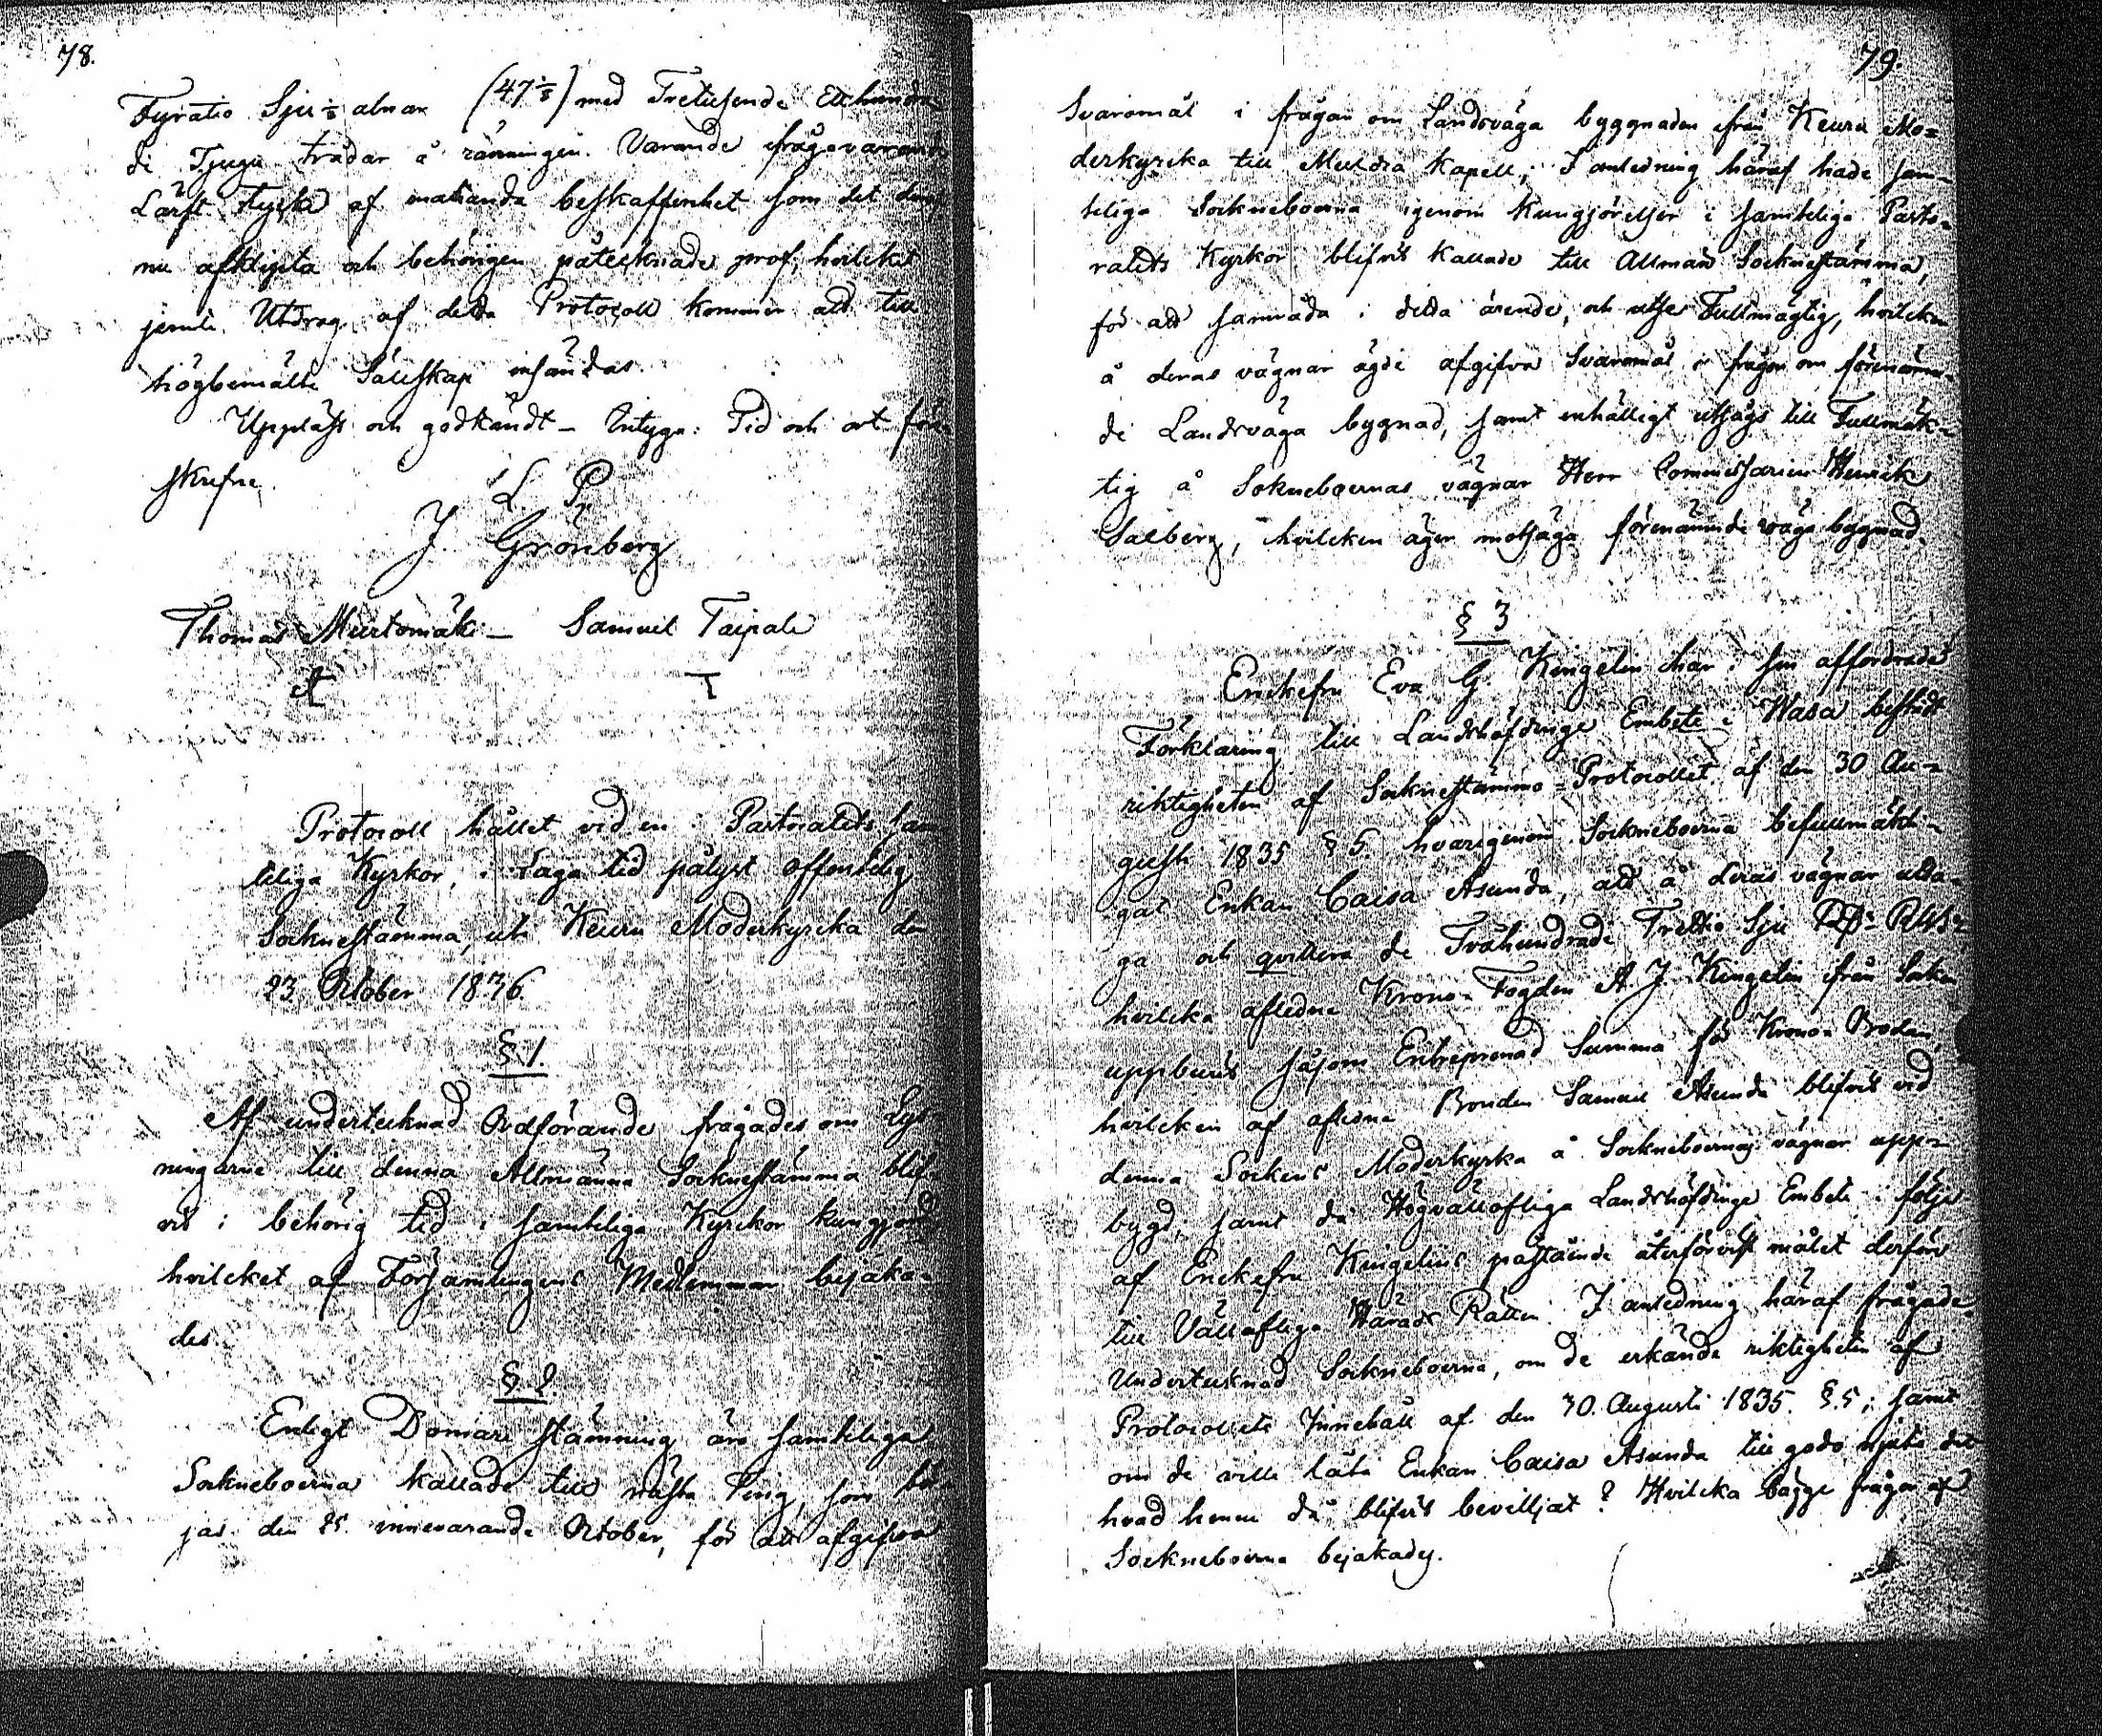 78.
Fyratio Sju ⅛ alnar (47⅛) med Tretusende Etthundra
de Tjugu trådar å ränningen. Varande ifrågavarande
Lärft stycke af enahanda beskaffenhet som det den
nu afklipta och behörigen påtecknade prof, hvilcket
jemte Utdrag af detta Protocoll kommer att till
högbemälte Sälskap insändas.
Uppläst och godkändt – Intyga: Tid och ort för
skrefne.
L. P.
J. Grönberg
Thomas Murtomäki – Samuel Taipale
Protocoll hållet vid en i Pastoratets sam
teliga Kyrkor, i Laga tid pålyst offentelig
Socknestämma, uti Keuru Moderkyrcka den
23 October 1836.
§ 1.
Af undertecknad Ordförande frågades om Lys
ningarne till denna Allmänna Socknestämma blif-
vit i behörig tid i samteliga Kyrckor kungjord,
hvilcket af Församlingens Medlemmar bejaka-
des.
§ 2.
Enligt Domare stämning äro samteliga
Sockneboerna kallade till nästa Ting, som bör-
jas den 25. innevarande October, för att afgifva
79.
Svaromål i frågan om Landsväga byggnaden ifrån Keuru Mo=
derkyrcka till Multia Kapell; I anledning häraf hade sam-
teliga Sockneboerna igenom Kungjörelser i samteliga Pasto-
ratets Kyrkor blifvit kallade till Allmän Socknestämma,
för att samråda i detta ärende, och utse Fullmägtig, hvilcken
å deras vägnar ägde afgifva Svaromål i frågan om förenämn-
de Landsväga bygnad, samt enhälligt utsågs till Fullmäk-
tig å Sokneboernas vägnar Herr Commissarien Henrik
Salberg, hvilcken äger motsäga förenämnde väga bygnad.
§ 3
Enckefru Eva G. Kingelin har i sin affordrade
Förklaring till Landshöfdinge Embete i Wasa bestridt
riktigheten af Socknestämmo=Protocollet af den 30 Au-
gusti 1835 § 5. hvarigenom Sockneboerna befullmäkti-
gat Enkan Caisa Asunda, att å deras vägnar utta-
ga och qvittera de Tvåhundrade Trettio Sju
hvilcka afledne Krono-Fogden A. J. Kingelin ifrån Sockn
uppburit såsom Entreprenad Summa för Krono Boden,
hvilcken af afledne Bonden Samuel Asunda blifvit vid
denna Sockens Moderkyrka å Sockneboernas vägnar upp-
bygd, samt då Högvällofliga Landshöfdinge Embete i följe
af Enckefru Kingelins påstående återförvist målet derföre
till Vällofliga Härads Rätten. I anledning häraf frågade
Undertecknad Sockneboerna, om de erkände riktigheten af
Protocollets Innehåll af den 30. Augusti 1835. § 5; samt
om de ville låta Enkan Caisa Asunda till godo njuta det
hvad henne då blifvit bevilljat? Hvilcka bägge frågor af
Sockneboerna bejakades.